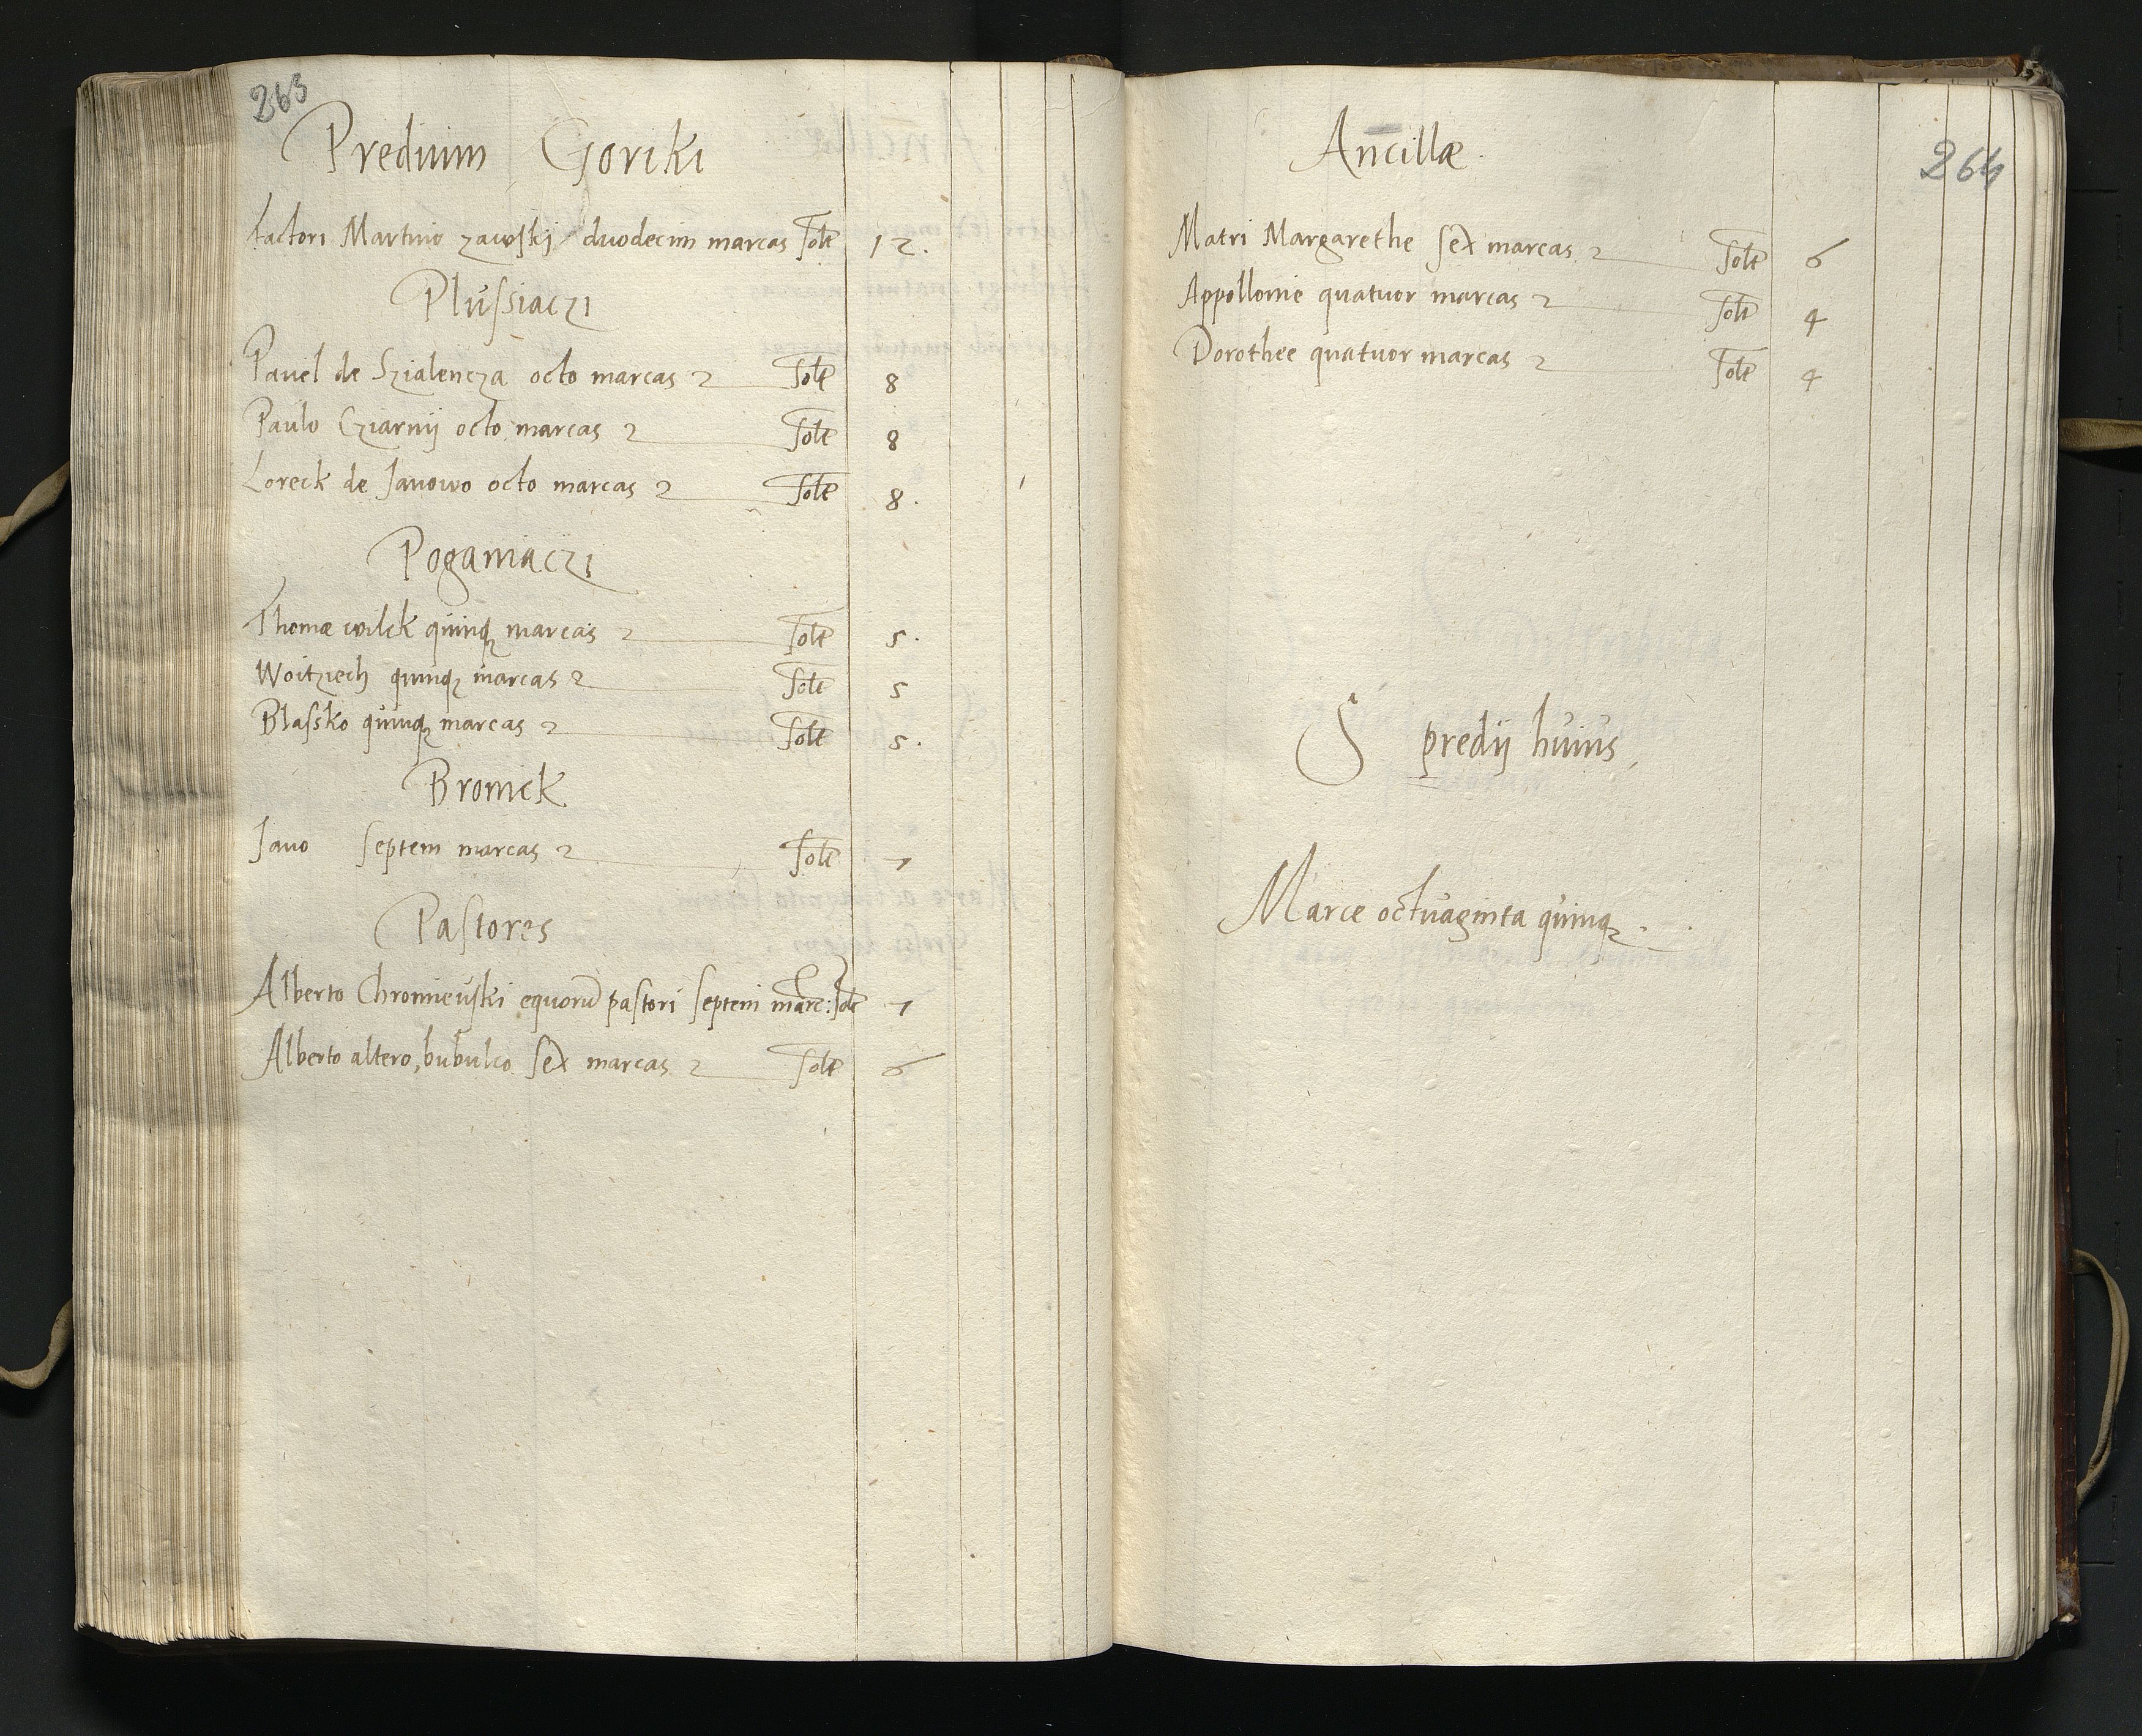 263
Predium Goriki
factori Martino zawski duodecim marcas solt 12.
Plussiaczi
Pauel de Szialencza octo marcas solt 8
Paulo Cziarnij octo marcas solt 8
Loreck de Janowo octo marcas solt 8.
Poganiaczi
Thomæ wilck quinqꝫ marcas solt 5.
Woitzech quinqꝫ marcas solt 5
Blassko quinqꝫ marcas solt 5.
Bronick
Jano septem marcas solt 7
Pastores
Alberto Chromieuski equorū pastori septem marc: solt 7
Alberto altero, bubulco sex marcas solt 6
264
Ancillæ.
Matri Margarethe sex marcas solt 6
Appollonie quatuor marcas solt 4
Dorothee quatuor marcas solt 4
S predij huius
Marce octuaginta quinqꝫ.